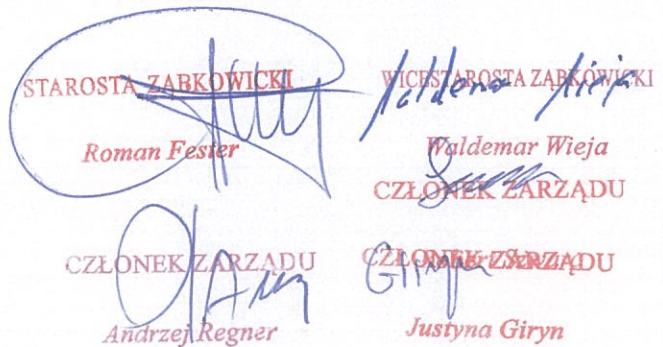 STAROSTA ZĄBKOWICKI
Roman Fester
WICESTAROSTA ZĄBKOWICKI
Waldemar Wieja
Waldemar Wieja
CZŁONEK ZARZĄDU
CZŁONEK ZARZĄDU
Andrzej Regner
CZŁONEK ZARZĄDU
Justyna Giryn